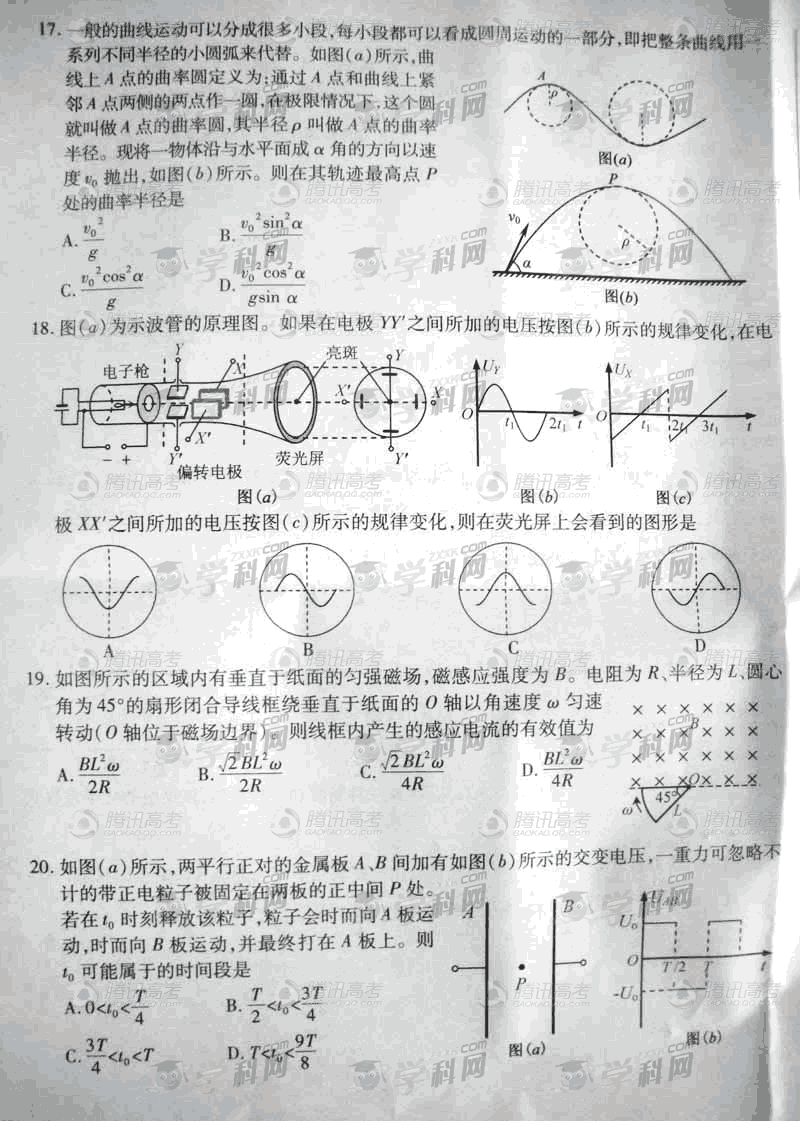 17. 一般的曲线运动可以分成很多小段,每小段都可以看成圆周运动的一部分,即把整条曲线用一
系列不同半径的小圆弧来代替。如图(a)所示,曲
线上A点的曲率圆定义为:通过A点和曲线上紧
邻A点两侧的两点作一圆,在极限情况下,这个圆
就叫做A点的曲率圆,其半径ρ叫做A点的曲率
半径。现将一物体沿与水平面成α角的方向以速
度v₀抛出,如图(b)所示。则在其轨迹最高点P
处的曲率半径是
A. v₀²/g
B. v₀²sin²α/g
C. v₀²cos²α/g
D. v₀²cos²α/gsin α
A
ρ
图(a)
P
v₀
α
ρ
图(b)
18. 图(a)为示波管的原理图。如果在电极YY′之间所加的电压按图(b)所示的规律变化,在电
电子枪
Y
X
亮斑
Y
X′
X
X′
Y′
Y′
- +
偏转电极
荧光屏
图(a)
U_Y
O
t₁
2t₁
t
图(b)
U_X
O
t₁
2t₁
3t₁
t
图(c)
极XX′之间所加的电压按图(c)所示的规律变化,则在荧光屏上会看到的图形是
A
B
C
D
19. 如图所示的区域内有垂直于纸面的匀强磁场,磁感应强度为B。电阻为R、半径为L、圆心
角为45°的扇形闭合导线框绕垂直于纸面的O轴以角速度ω匀速
转动(O轴位于磁场边界)。则线框内产生的感应电流的有效值为
A. BL²ω/2R
B. √2BL²ω/2R
C. √2BL²ω/4R
D. BL²ω/4R
× × × × × ×
× × × × × ×
B
× × × × × ×
× × × × O × × ×
45°
ω
L
20. 如图(a)所示,两平行正对的金属板A、B间加有如图(b)所示的交变电压,一重力可忽略不
计的带正电粒子被固定在两板的正中间P处。
若在t₀时刻释放该粒子,粒子会时而向A板运
动,时而向B板运动,并最终打在A板上。则
t₀可能属于的时间段是
A. 0<t₀<T/4
B. T/2<t₀<3T/4
C. 3T/4<t₀<T
D. T<t₀<9T/8
A
B
P
图(a)
U_AB
U₀
O
T/2
T
t
-U₀
图(b)
学科网
ZXXK.com
腾讯高考
GAOKAO.QQ.COM